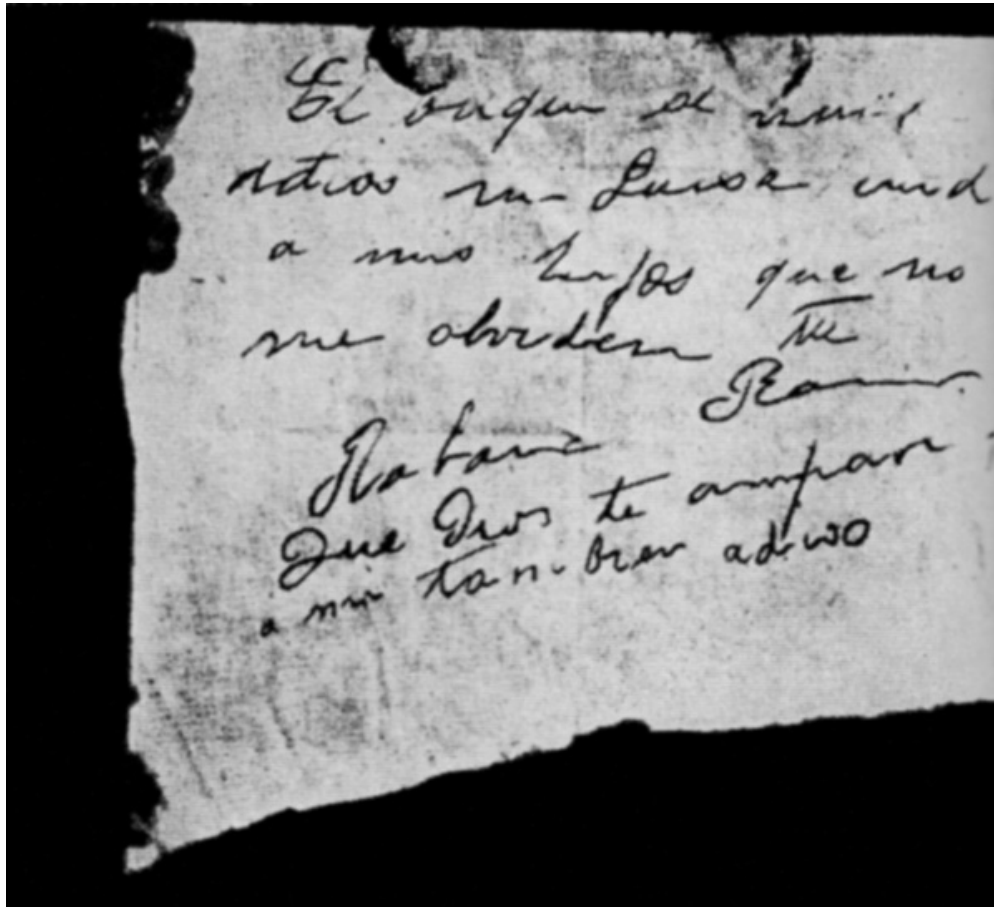 El buque se
adios mi Luisa cuid
a mis hijos que no
me olviden Tu
Ramon
Habana
Que Dios te ampare
a mi tambien adios